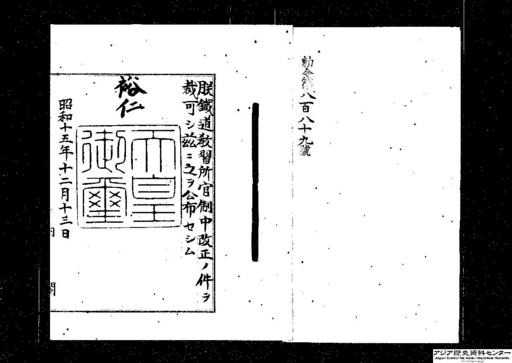 勅令第八百八十九號
朕鐵道教習所官制中改正ノ件ヲ
裁可シ茲ニ之ヲ公布セシム
裕仁
天皇
御璽
昭和十五年十二月十三日
内 閣
アジア歴史資料センター
Japan Center for Asian Historical Records